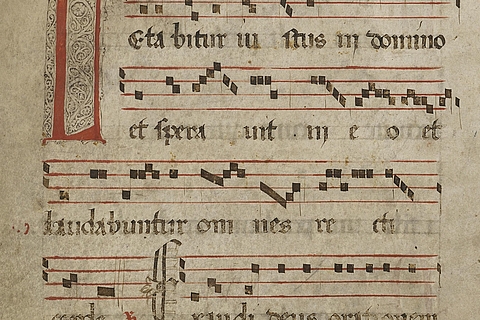 Letabitur iustus in domino
et spera uit in e o et
laudabuntur om nes re cti
corde. ℣. Exaudi deus orationem